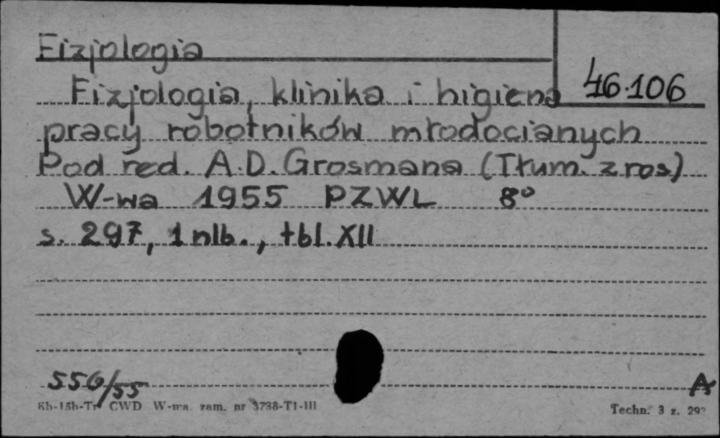 Fizjologia
46.106
Fizjologia, klinika i higiena
pracy robotników młodocianych
Pod red. A.D. Grosmana (Tłum. z ros)
W-wa 1955 PZWL 8°
s. 297, 1 nlb., tbl. XII
556/55
A
CWD W-wa zam. nr 3738-T1-III
Techn. 3 z.